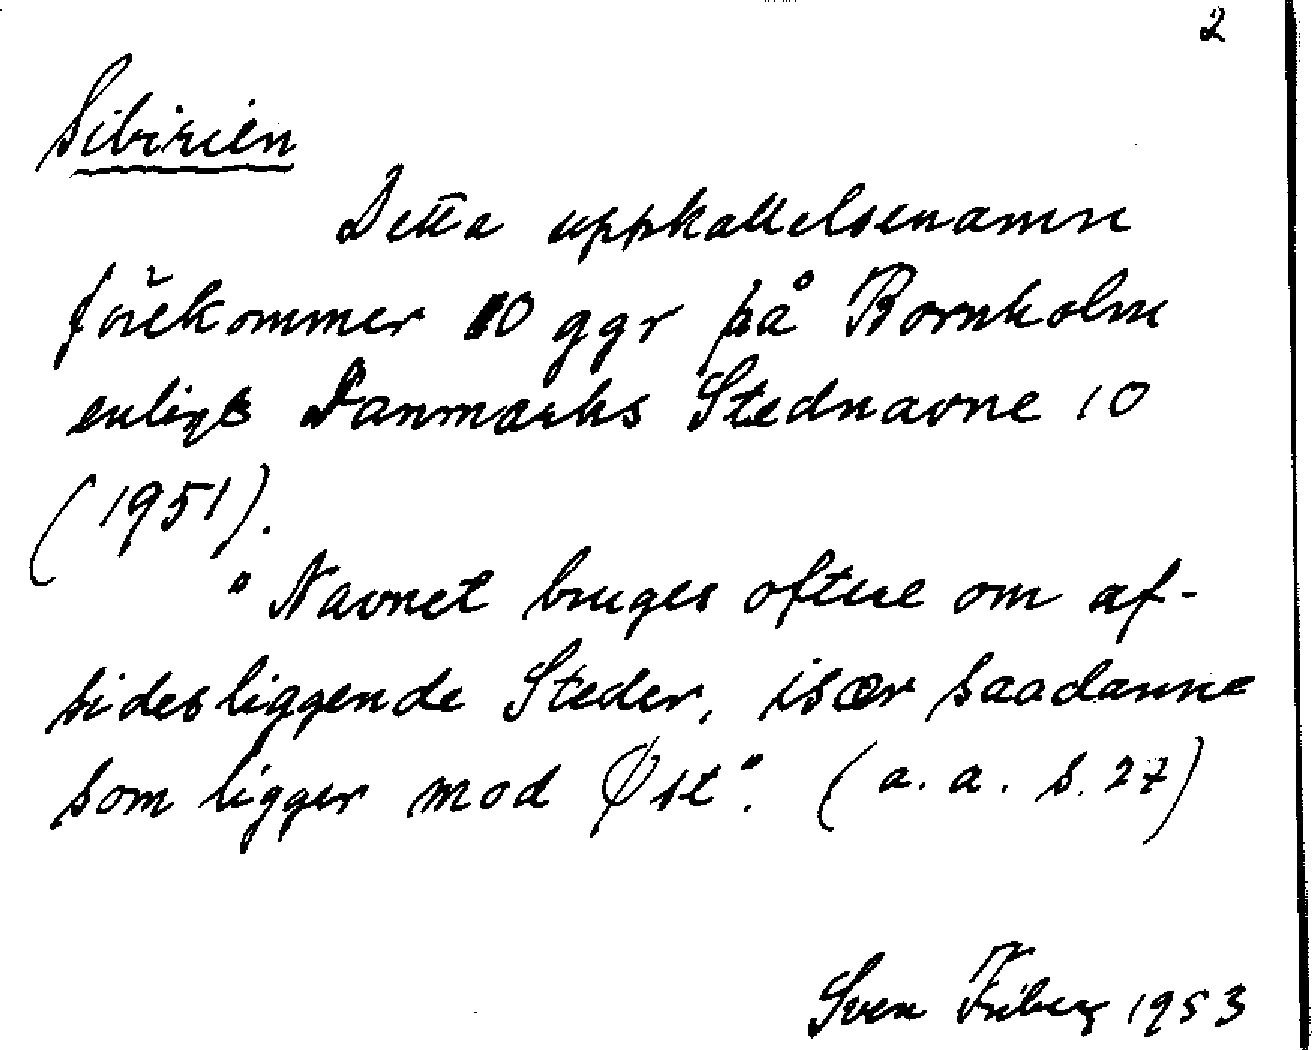 2
Sibirien
Detta uppkallelsenamn
förekommer 10 ggr på Bornholm
enligt Danmarks Stednavne 10
(1951).
"Navnet bruges oftere om af-
sidesliggende Steder, især saadanne
som ligger mod Øst". (a. a. s. 27)
Sven Friberg 1953